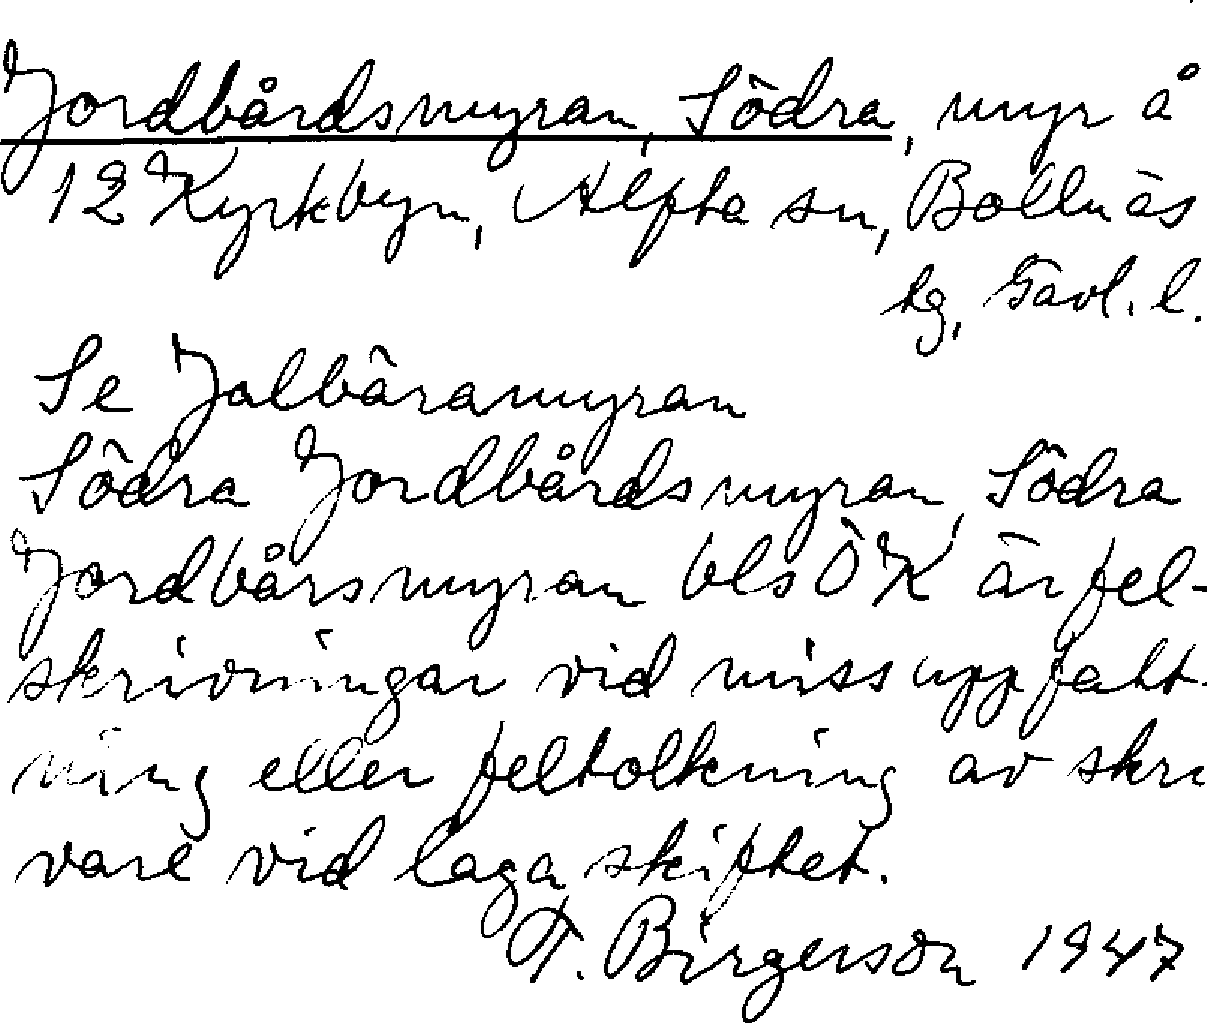 Jordbårdsmyran, Södra, myr å
12 Kyrkbyn, Alfta sn, Bollnäs
tg, Gävl. l.
Se Jalbäramyran
Södra Jordbårdsmyran, Södra
Jordbårsmyran bls ÖK är fel-
skrivningar vid missuppfatt-
ning eller feltolkning av skri
vare vid laga skiftet.
F. Birgerson 1947